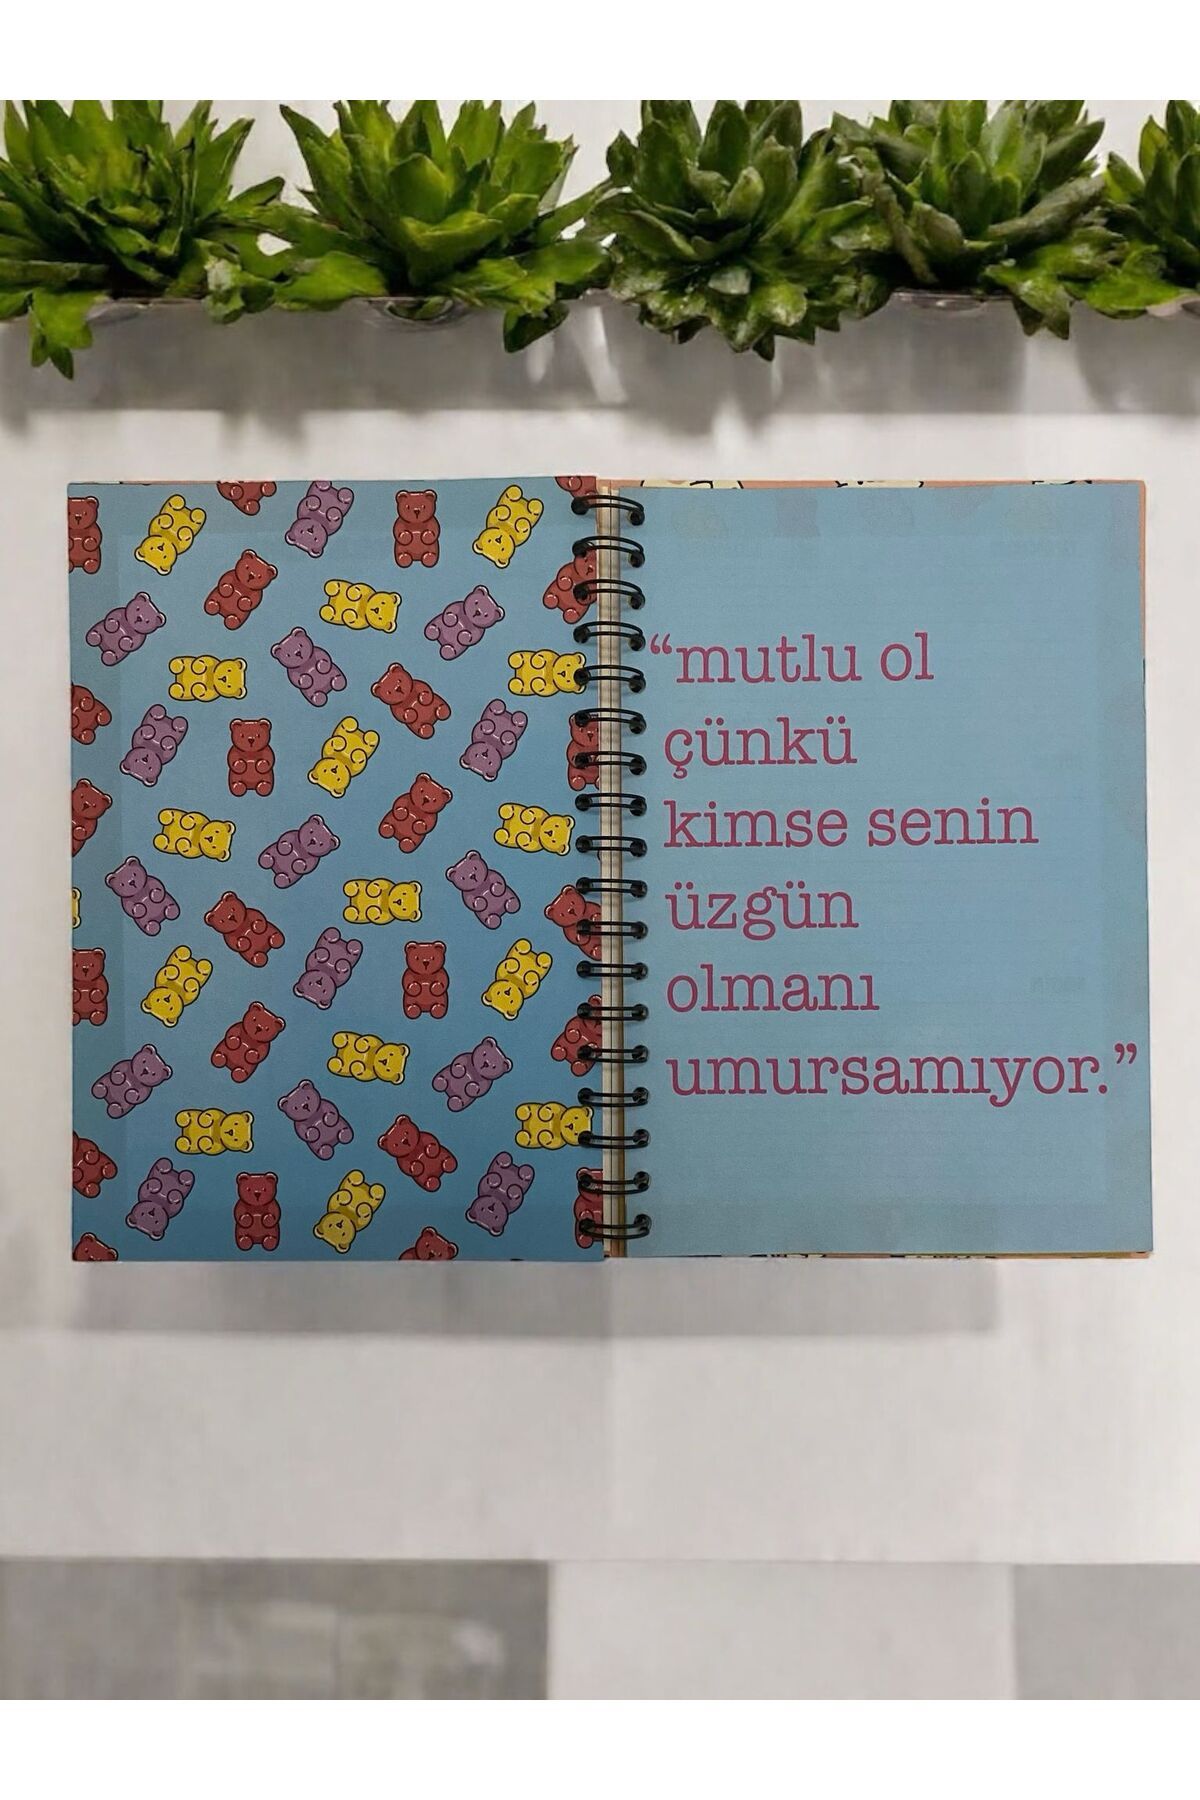 “mutlu ol
çünkü
kimse senin
üzgün
olmanı
umursamıyor.”